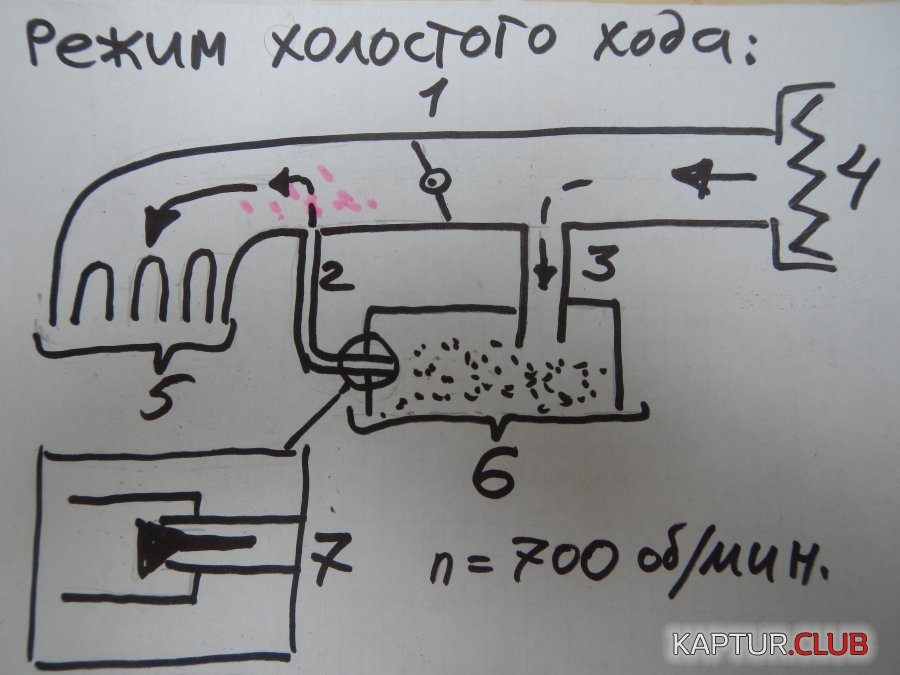 Режим холостого хода:
1
4
2
3
5
6
7
n = 700 об/мин.
KAPTUR.CLUB